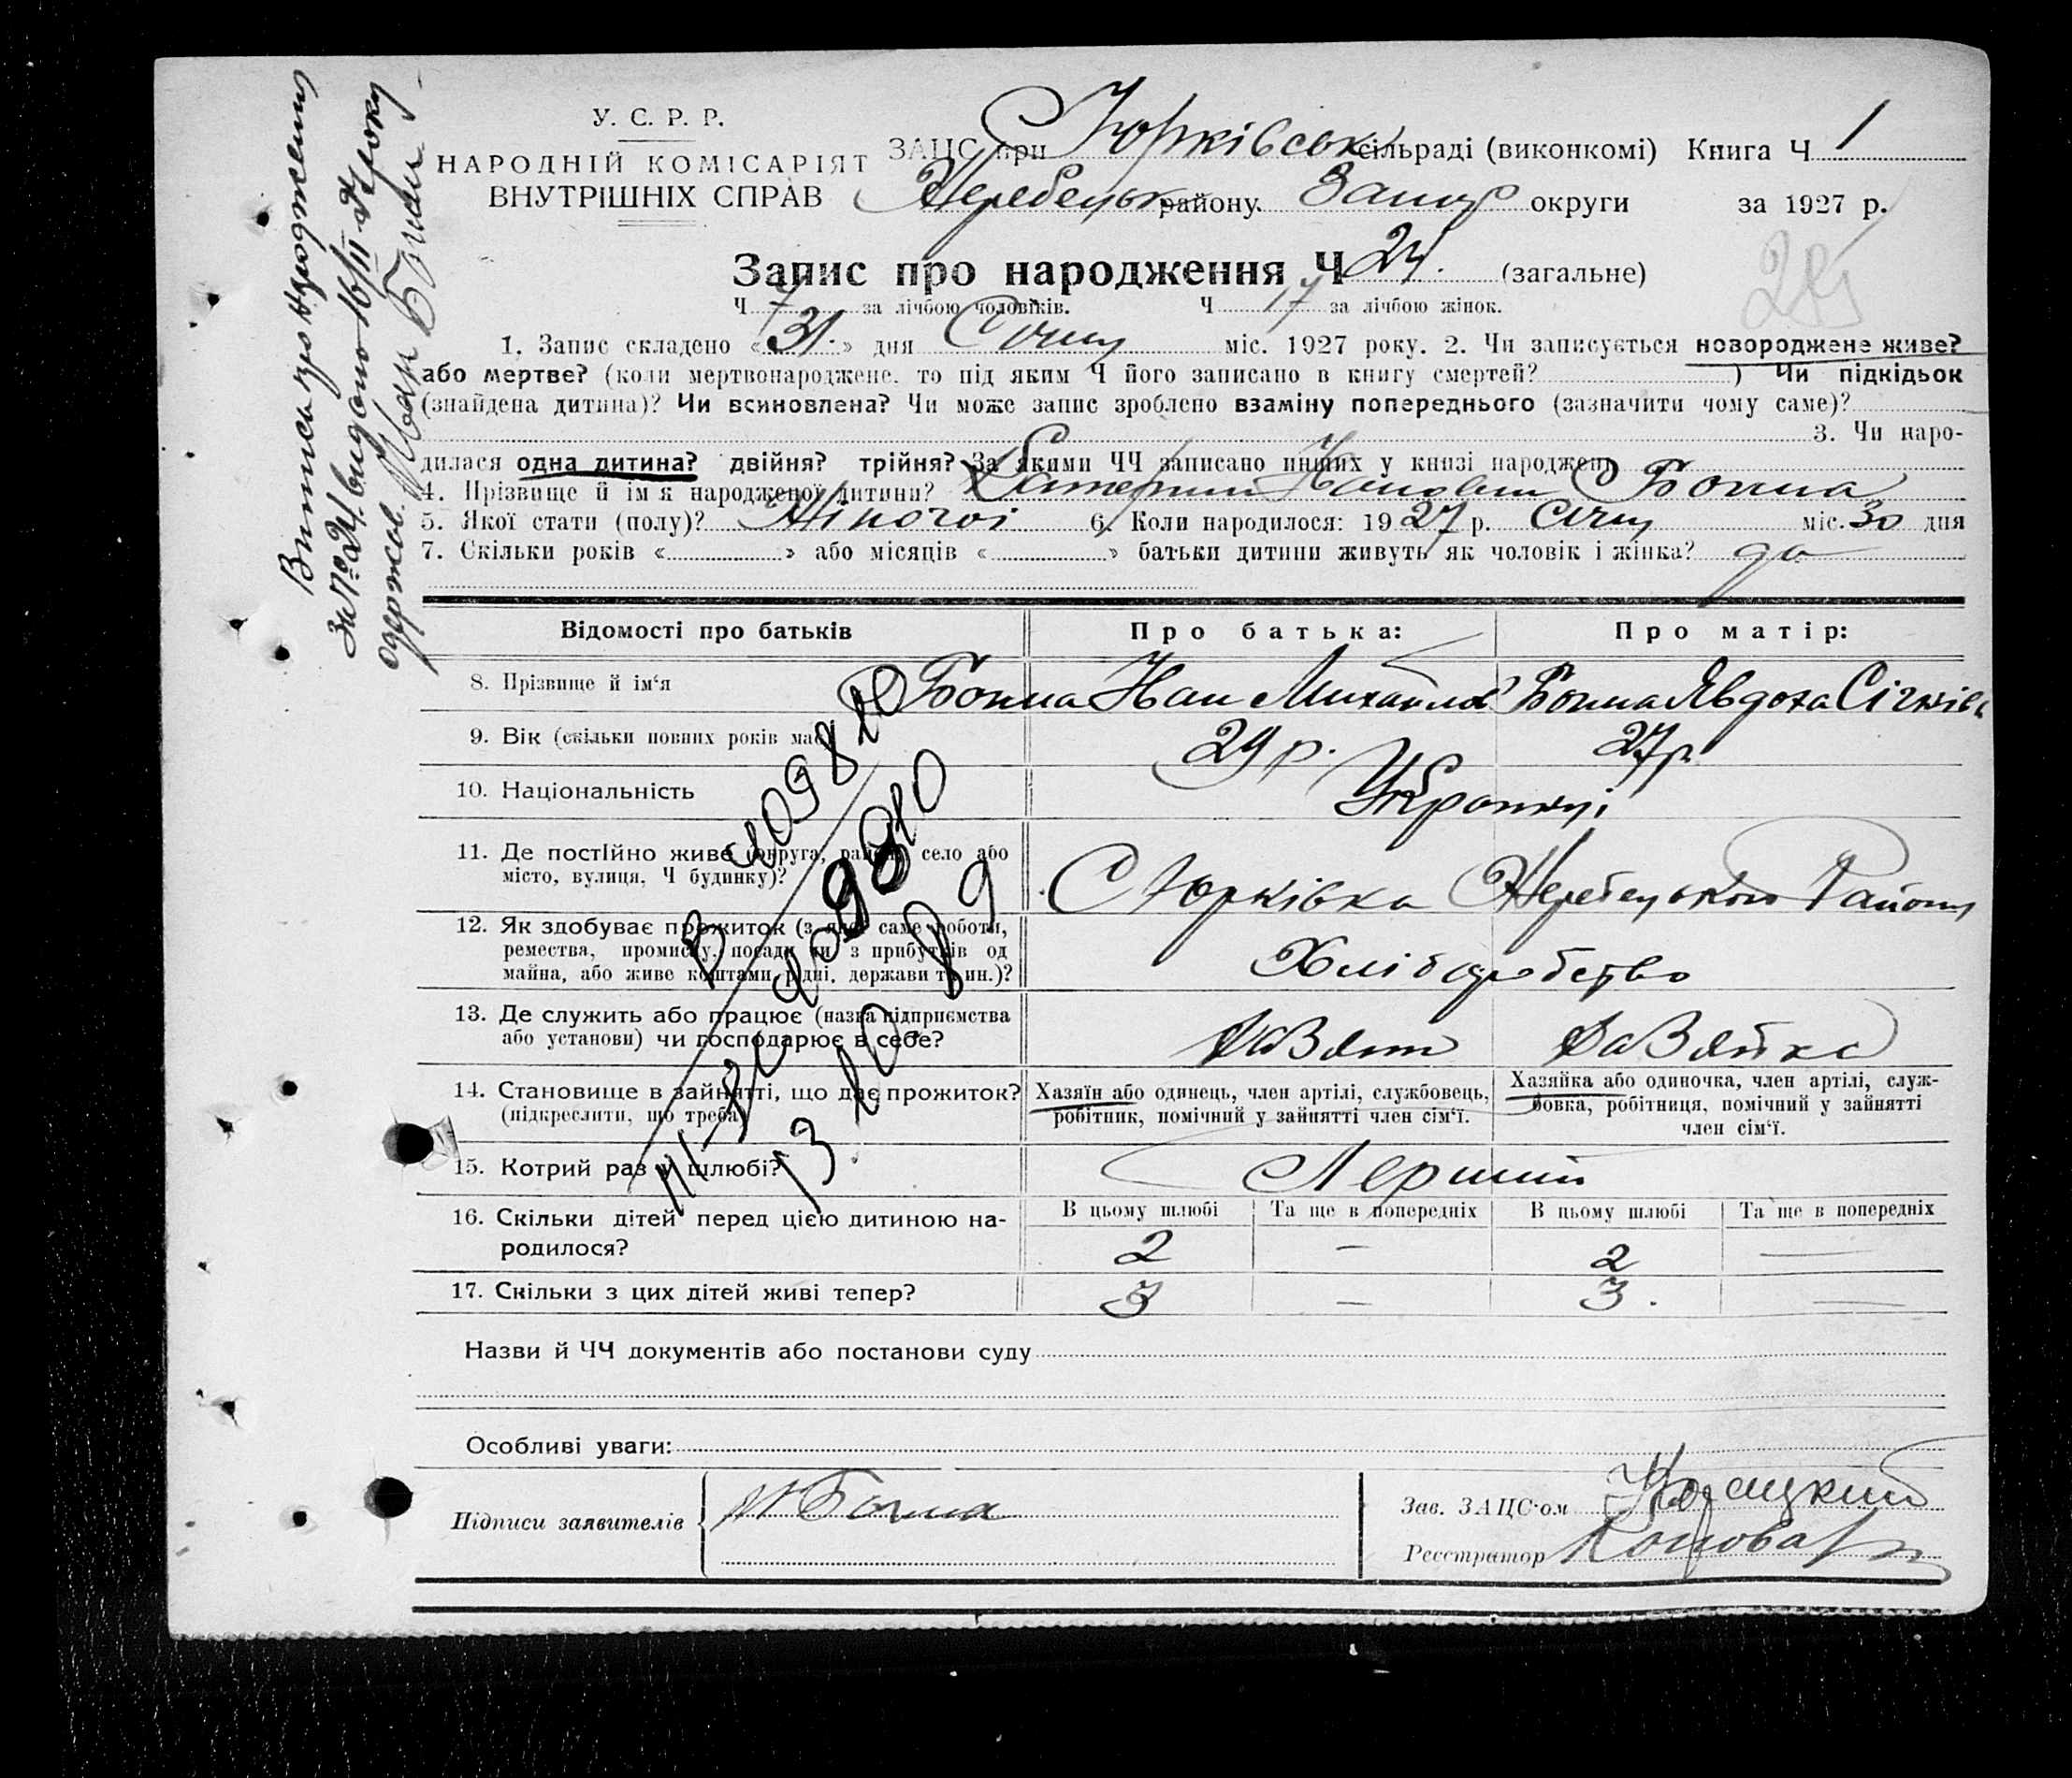 У. С. Р. Р.
НАРОДНІЙ КОМІСАРІЯТ
ВНУТРІШНІХ СПРАВ
ЗАЦС при Юрківськ сільраді (виконкомі) Книга Ч 1
Жеребецьк району Запор округи за 1927 р.
Запис про народження Ч 24. (загальне)
Ч 7 за лічбою чоловіків. Ч 17 за лічбою жінок.
1. Запис складено «31.» дня Січня міс. 1927 року. 2. Чи записується новороджене живе?
або мертве? (коли мертвонароджене, то під яким Ч його записано в книгу смертей? ) Чи підкідьок
(знайдена дитина)? Чи всиновлена? Чи може запис зроблено взаміну попереднього (зазначити чому саме)?
3. Чи наро-
дилася одна дитина? двійня? трійня? За якими ЧЧ записано инших у книзі народжень
4. Прізвище й ім'я народженої дитини? Катерина Бонма
5. Якої стати (полу)? Жіночої 6. Коли народилося: 1927 р. Січня міс. 30 дня
7. Скільки років « » або місяців « » батьки дитини живуть як чоловік і жінка? да
Відомості про батьків Про батька: Про матір:
8. Прізвище й ім'я Бонма Иван Михайлов Бонма Явдоха
9. Вік (скільки повних років має) 29 р. 27 р.
10. Національність Українці
11. Де постійно живе (округа, район, село або
місто, вулиця, Ч будинку)? С Юрківка Жеребецького Району
12. Як здобуває прожиток (з якої саме роботи,
ремества, промислу, посади чи з прибутків од
майна, або живе коштами рідні, держави та ин.)? Хліборобство
13. Де служить або працює (назва підприємства
або установи) чи господарює в себе?
14. Становище в зайнятті, що дає прожиток?
(підкреслити, що треба)
Хазяїн або одинець, член артілі, службовець,
робітник, помічний у зайнятті член сім'ї.
Хазяйка або одиночка, член артілі, служ-
бовка, робітниця, помічний у зайнятті
член сім'ї.
15. Котрий раз у шлюбі? Перший
В цьому шлюбі Та ще в попередніх В цьому шлюбі Та ще в попередніх
16. Скільки дітей перед цією дитиною на-
родилося? 2 — 2 —
17. Скільки з цих дітей живі тепер? 3 — 3. —
Назви й ЧЧ документів або постанови суду
Особливі уваги:
Підписи заявителів
Зав. ЗАЦС'ом
Реєстратор
Виписъ про народження
за № 24 видано 16/II 27 року
одержав